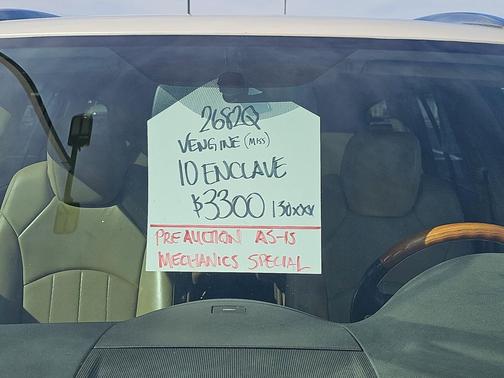 2682Q
VENGINE (MISS)
10 ENCLAVE
$3300 130xxx
PRE AUCTION AS-IS
MECHANICS SPECIAL